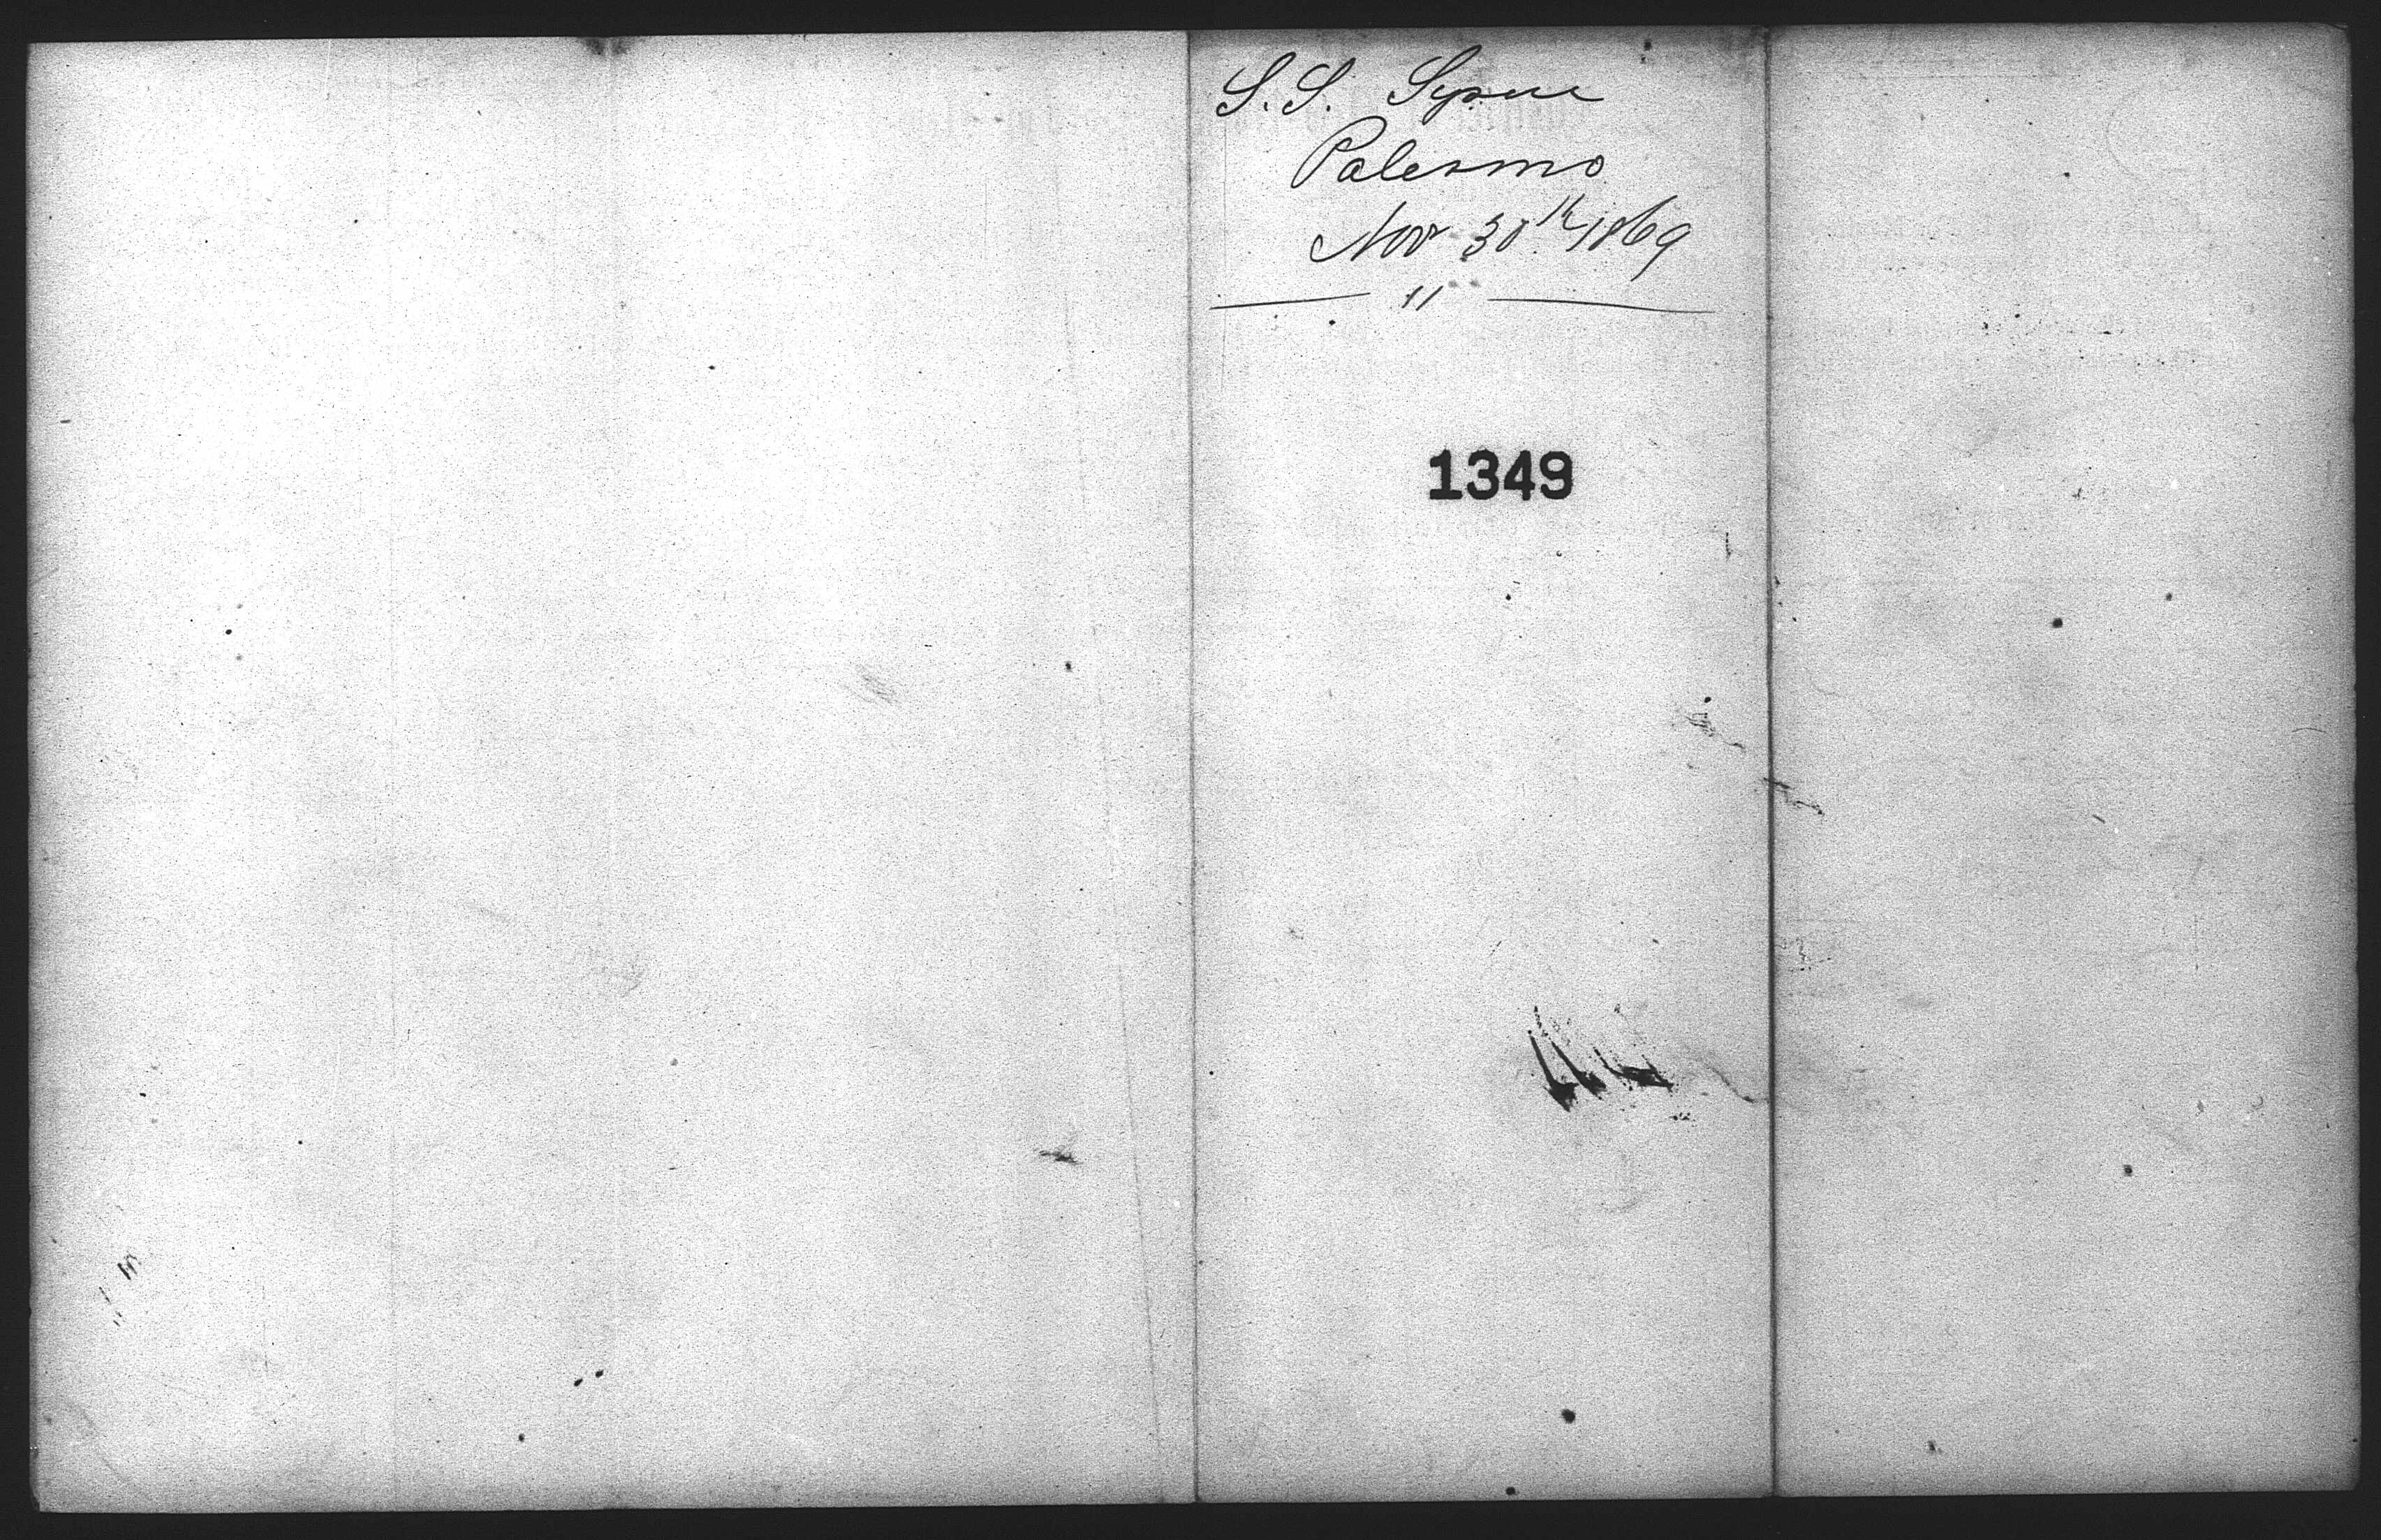 S. S. Syrue
Palermo
Nov 30th 1869
11
1349